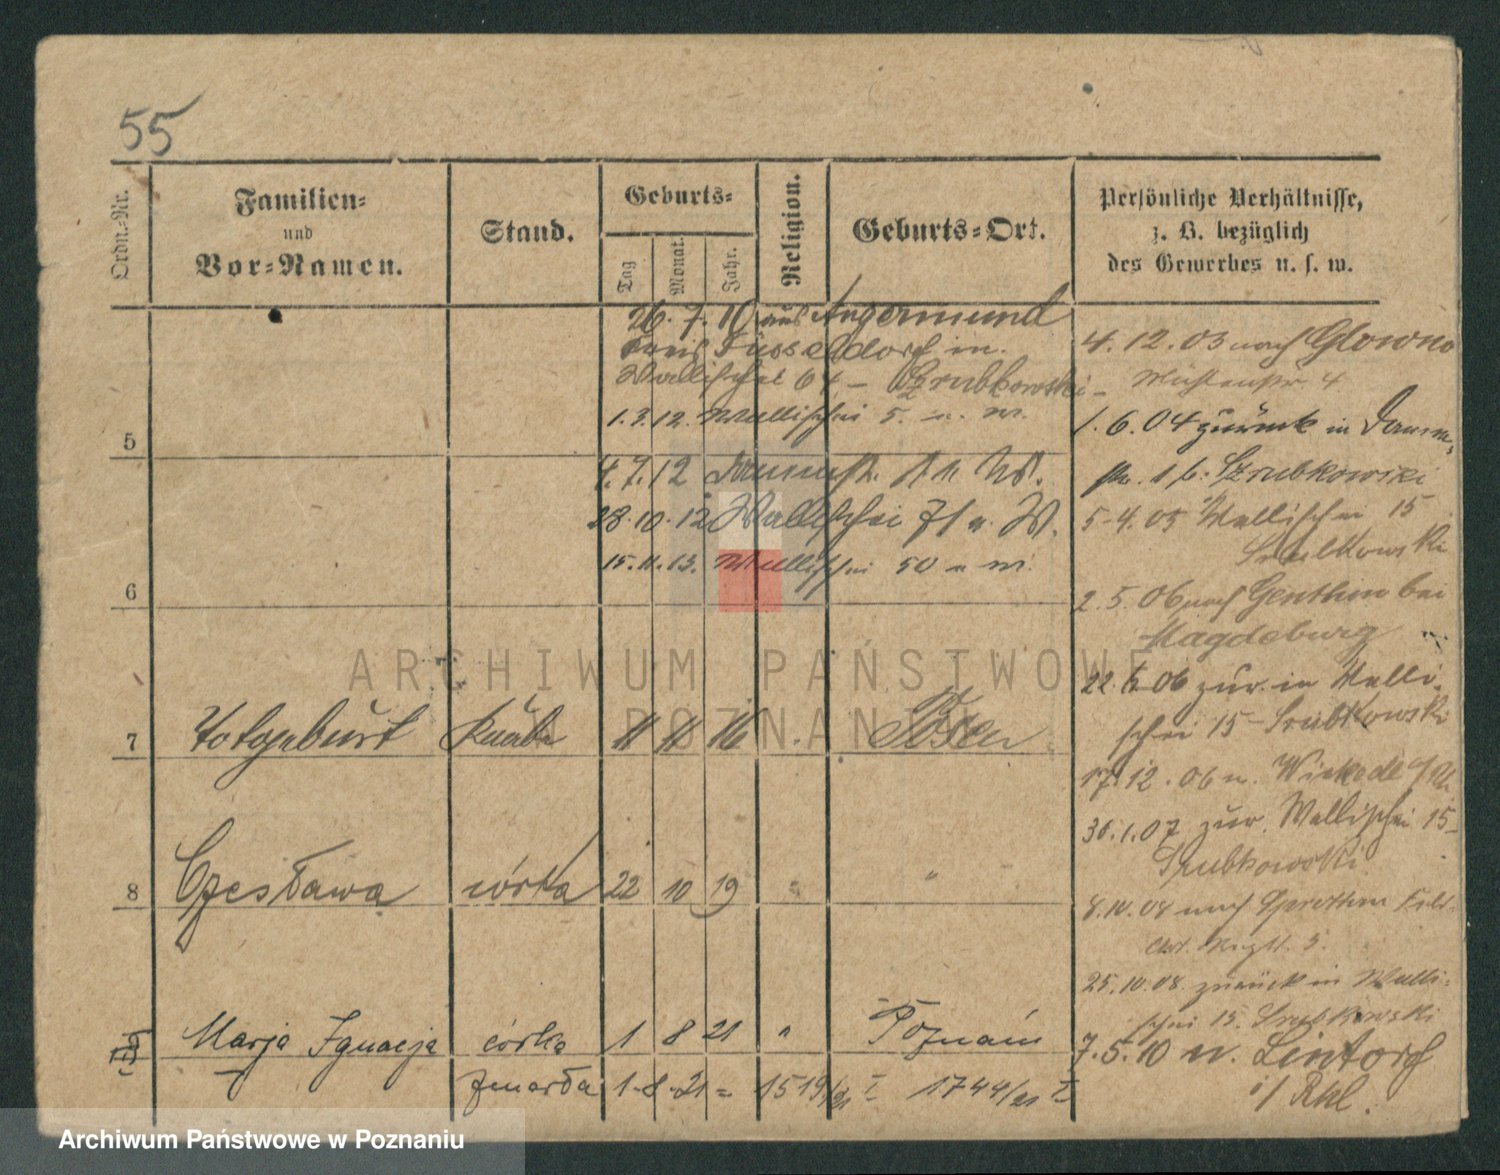 55
Ordn.-Nr.
Familien-
und
Vor-Namen.
Stand.
Geburts-
Tag
Monat.
Jahr.
Religion.
Geburts-Ort.
Persönliche Verhältnisse,
z. B. bezüglich
des Gewerbes u. s. w.
26. 7. 10 aus Angermund
Kreis Düsseldorf in
Wallischei 64 - Szrubkowski
1.3.12. Wallischei 5. u. W.
5
4.7.12 Dammstr. 11 u. W.
28.10.12 Wallischei 71 u. W.
15.11.13. Wallischei 50 u. W.
6
7 Totgeburt Knabe 11 11 16 " Posen
8 Czesława córka 22 10 19 " "
Marja Ignacja córka 1 8 21 " Poznań
zmarła 1.8.21 = 1519/21 I 1744/21 I
4.12.03 nach Glowno
4
1.6.04 zurück in Damm-
str. 1 b. Szrubkowski
5.4.05 Wallischei 15
Srubkowski
2.5.06 nach Genthin bei
Magdeburg
22.6.06 zur. in Walli-
schei 15 - Srubkowski
17.12.06 n. Wickede a/R.
30.1.07 zur. Wallischei 15-
Srubkowski
8.10.08 nach
25.10.08. zurück in Walli-
schei 15. Srubkowski
7.5.10 n. Lintorf
i/ Rhl.
ARCHIWUM PAŃSTWOWE
W POZNANIU
Archiwum Państwowe w Poznaniu